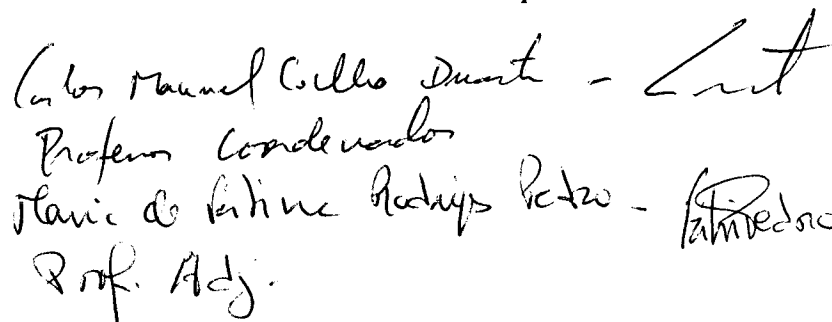 Carlos Manuel Coelho Duarte -
Professor Coordenador
Maria de Fátima Rodrigues Pedro -
Prof. Adj.